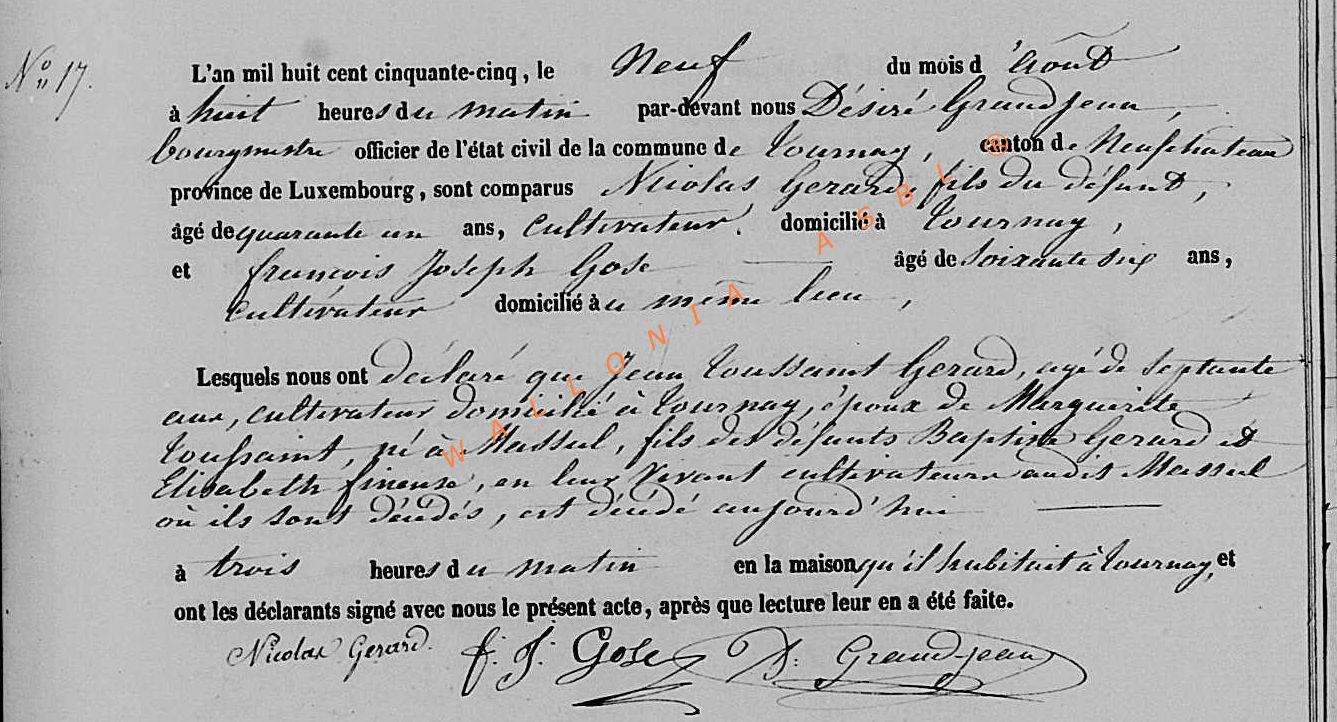 N° 17.
L'an mil huit cent cinquante-cinq, le Neuf du mois d'Août
à huit heures du matin par-devant nous Désiré Grandjean,
bourgmestre officier de l'état civil de la commune de Tournay, canton de Neufchateau
province de Luxembourg, sont comparus Nicolas Gerard, fils du défunt,
âgé de quarante un ans, cultivateur, domicilié à Tournay,
et françois Joseph Gose âgé de soixante six ans,
cultivateur domicilié au même lieu,
Lesquels nous ont déclaré que Jean Toussaint Gerard, agé de septante
ans, cultivateur domicilié à Tournay, époux de Marguerite
Toussaint, né à Massul, fils des défunts Baptiste Gerard et
Elisabeth fineuse, en leur vivant cultivateurs audit Massul
où ils sont décédés, est décédé aujourd'hui
à trois heures du matin en la maison qu'il habitait à Tournay, et
ont les déclarants signé avec nous le présent acte, après que lecture leur en a été faite.
Nicolas Gerard. f. J. Gose D. Grandjean
WALLONIA ASBL ®